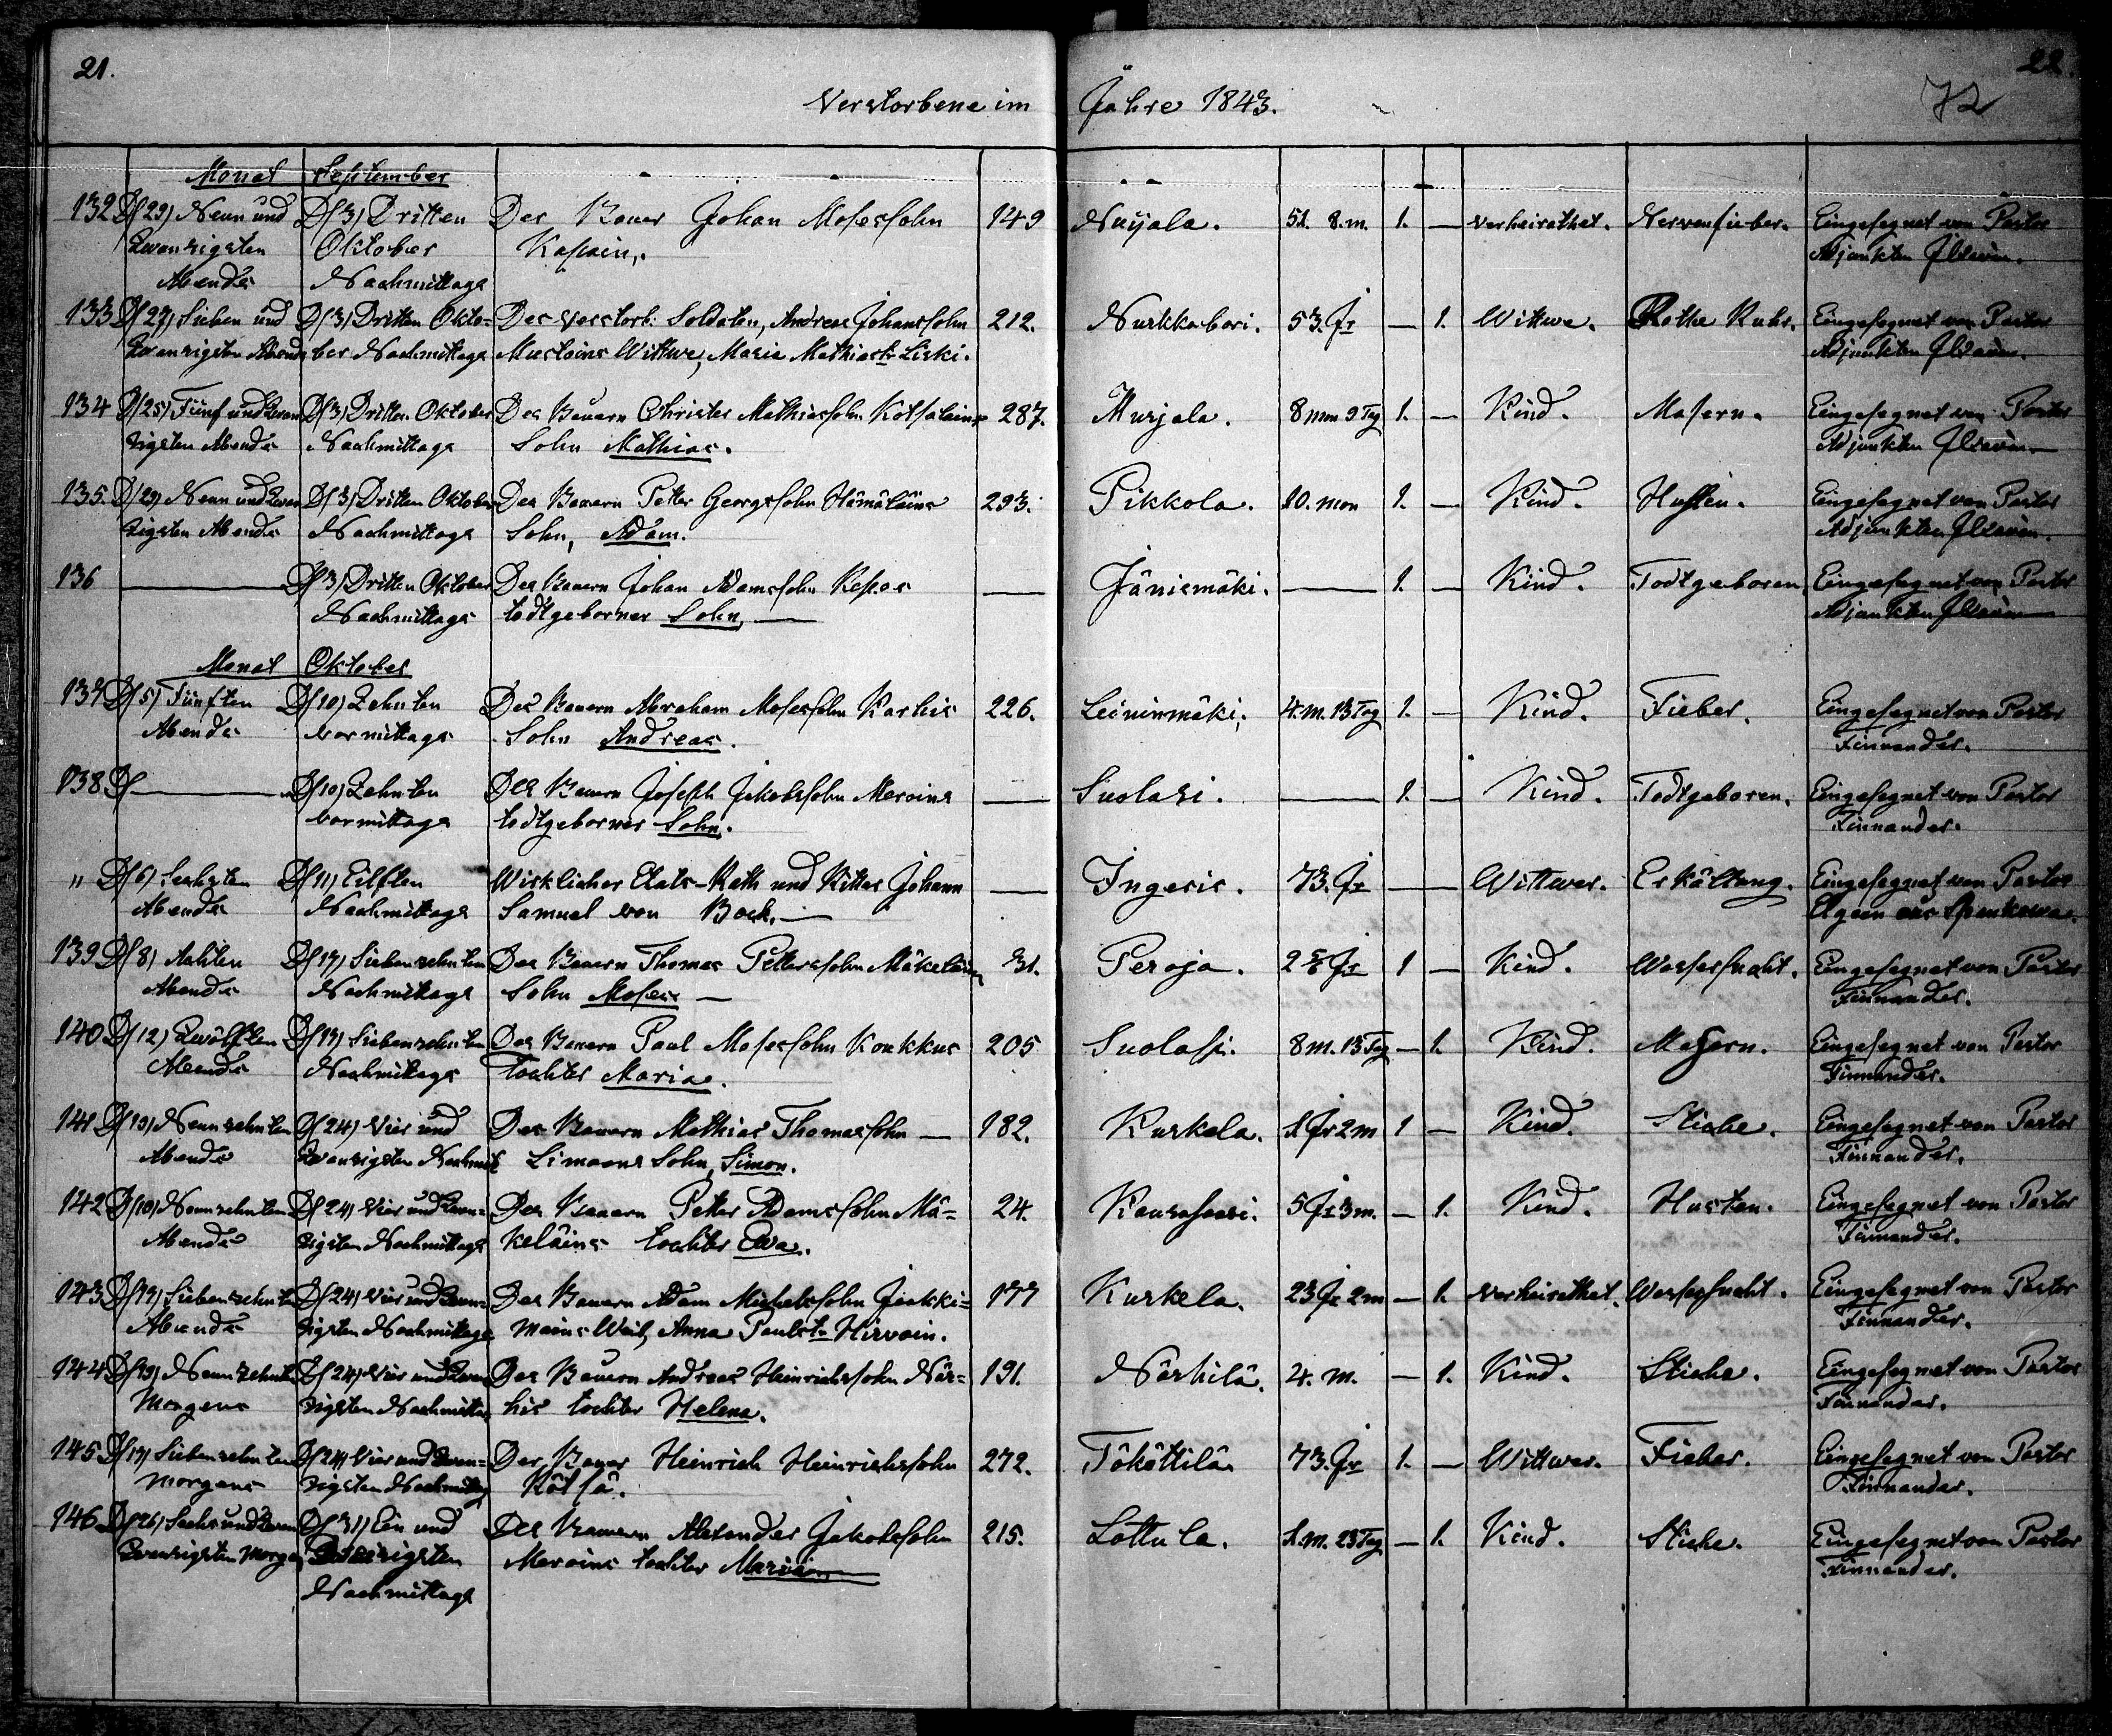 21.
22.
72
Verstorbene im Jahre 1843.
Monat September
132 D (29) Neun und D (3) Dritten Der Bauer Johan Mosessohn 149 Nuijala. 51. 8.m. 1. — verheirathet. Nervenfieber. Eingesegnet von Pastor
Zwanzigsten Oktober Adjunkten
Abends Nachmittags
133 D (27) Sieben und D (3) Dritten Okto= Des verstorb. Soldaten, Andreas Johanssohn 212. Nurkkabori. 53. Jr — 1. Wittwe. Rothe Ruhr. Eingesegnet von Pastor
Zwanzigsten Abends ber Nachmittags Mustoins Wittwe, Maria Mathiast. Liski. Adjunkten
134 D (25) Fünf und Zwan D (3) Dritten Oktober Des Bauern Christer Mathiassohn 287. Murjala. 8 mon 9 Tag 1. — Kind. Masern. Eingesegnet von Pastor
zigsten Abends Nachmittags Sohn Mathias. Adjunkten
135. D (29) Neun und Zwan D (3) Dritten Oktober Des Bauern Petter Georgssohn Hämäläins 293. Pikkola. 10. mon 1. — Kind. Husten. Eingesegnet von Pastor
zigsten Abends Nachmittags Sohn, Adam. Adjunkten
136 — D (3) Dritten Oktober Des Bauern Johan Adamssohn Repos — Jänismäki. — 1. — Kind. Todtgeboren Eingesegnet von Pastor
Nachmittags todtgeborner Sohn, — Adjunkten
Monat Oktober
137 D (5) Fünften D (10) Zehnten Des Bauern Abraham Mosessohn Karhis 226. Leininmäki. 4. m. 13 Tag 1. — Kind. Fieber. Eingesegnet von Pastor
Abends Vormittags Sohn Andreas. Finnander.
138 D — D (10) Zehnten Des Bauern Joseph Jakobssohn Meroins — Suolasi. — 1. — Kind. Todtgeboren. Eingesegnet von Pastor
Vormittags todtgeborner Sohn. Finnander.
" D (6) Sechsten D (11) Eilften Wirklicher Etats-Rath und Ritter Johann — Ingeris. 73. Jr — Wittwer. Erkältung. Eingesegnet von Pastor
Abends Nachmittags Samuel von Bock. — Elgeen aus Spankowa.
139 D (8) Achten D (17) Siebenzehnten Des Bauern Thomas Petterssohn Mäkeläins 31. Peroja. Jr 1 — Kind. Wassersucht. Eingesegnet von Pastor
Abends Nachmittags Sohn Moses — Finnander.
140 D (12) Zwölften D (17) Siebenzehnten Des Bauern Paul Mosessohn Koukkus 205 Suolasi. 8 m. 13 Tag — 1. Kind. Masern. Eingesegnet von Pastor
Abends Nachmittags Tochter Maria. Finnander.
141 D (19) Neunzehnten D (24) Vier und Des Bauern Mathias Thomassohn — 182. Kurkela. 1 Jr 2 m 1 — Kind. Stiche. Eingesegnet von Pastor
Abends Zwanzigsten Nachmit Simoons Sohn, Simon. Finnander.
142 D (19) Neunzehnten D (24) Vier und Zwan= Des Bauern Peter Adamssohn Mä= 24. 5 Jr 3 m. — 1. Kind. Husten. Eingesegnet von Pastor
Abends zigsten Nachmittags keläins tochter Ewa. Finnander.
143 D (17) Siebenzehnten D (24) Vier und Zwan= Des Bauern Adam Michelssohn Jäkki= 177 Kurkela. 23 Jr 2 m — 1. Verheirathet. Wassersucht. Eingesegnet von Pastor
Abends zigsten Nachmittags moins Weib, Anna Paulst. Hirvoin. Finnander.
144 D (19) Neunzehnten D (24) Vier und Zwan Des Bauern Andreas Heinrichssohn När= 191. Närhilä. 4. m. — 1. Kind. Stiche. Eingesegnet von Pastor
Morgens zigsten Nachmittag his tochter Helena. Finnander.
145 D (17) Siebenzehnten D (24) Vier und Zwan= Der Bauer Heinrich Heinrichssohn 272. Tököttilä 73. Jr 1. — Wittwer. Fieber. Eingesegnet von Pastor
Morgens zigsten Nachmittag Rätsä. Finnander.
146 D (26) Sechs und Zwan D (31) Ein und Des Bauern Alexander Jakobssohn 215. Lottula. 1. m. 23 Tag — 1. Kind. Stiche. Eingesegnet von Pastor
Zwanzigsten Morgen Meroins tochter Maria Finnander.
Nachmittags